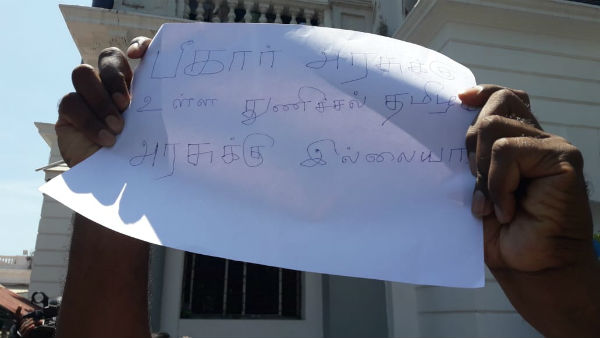 பீகார் அரசுக்கு
உள்ள துணிச்சல் தமிழ
அரசுக்கு இல்லையா